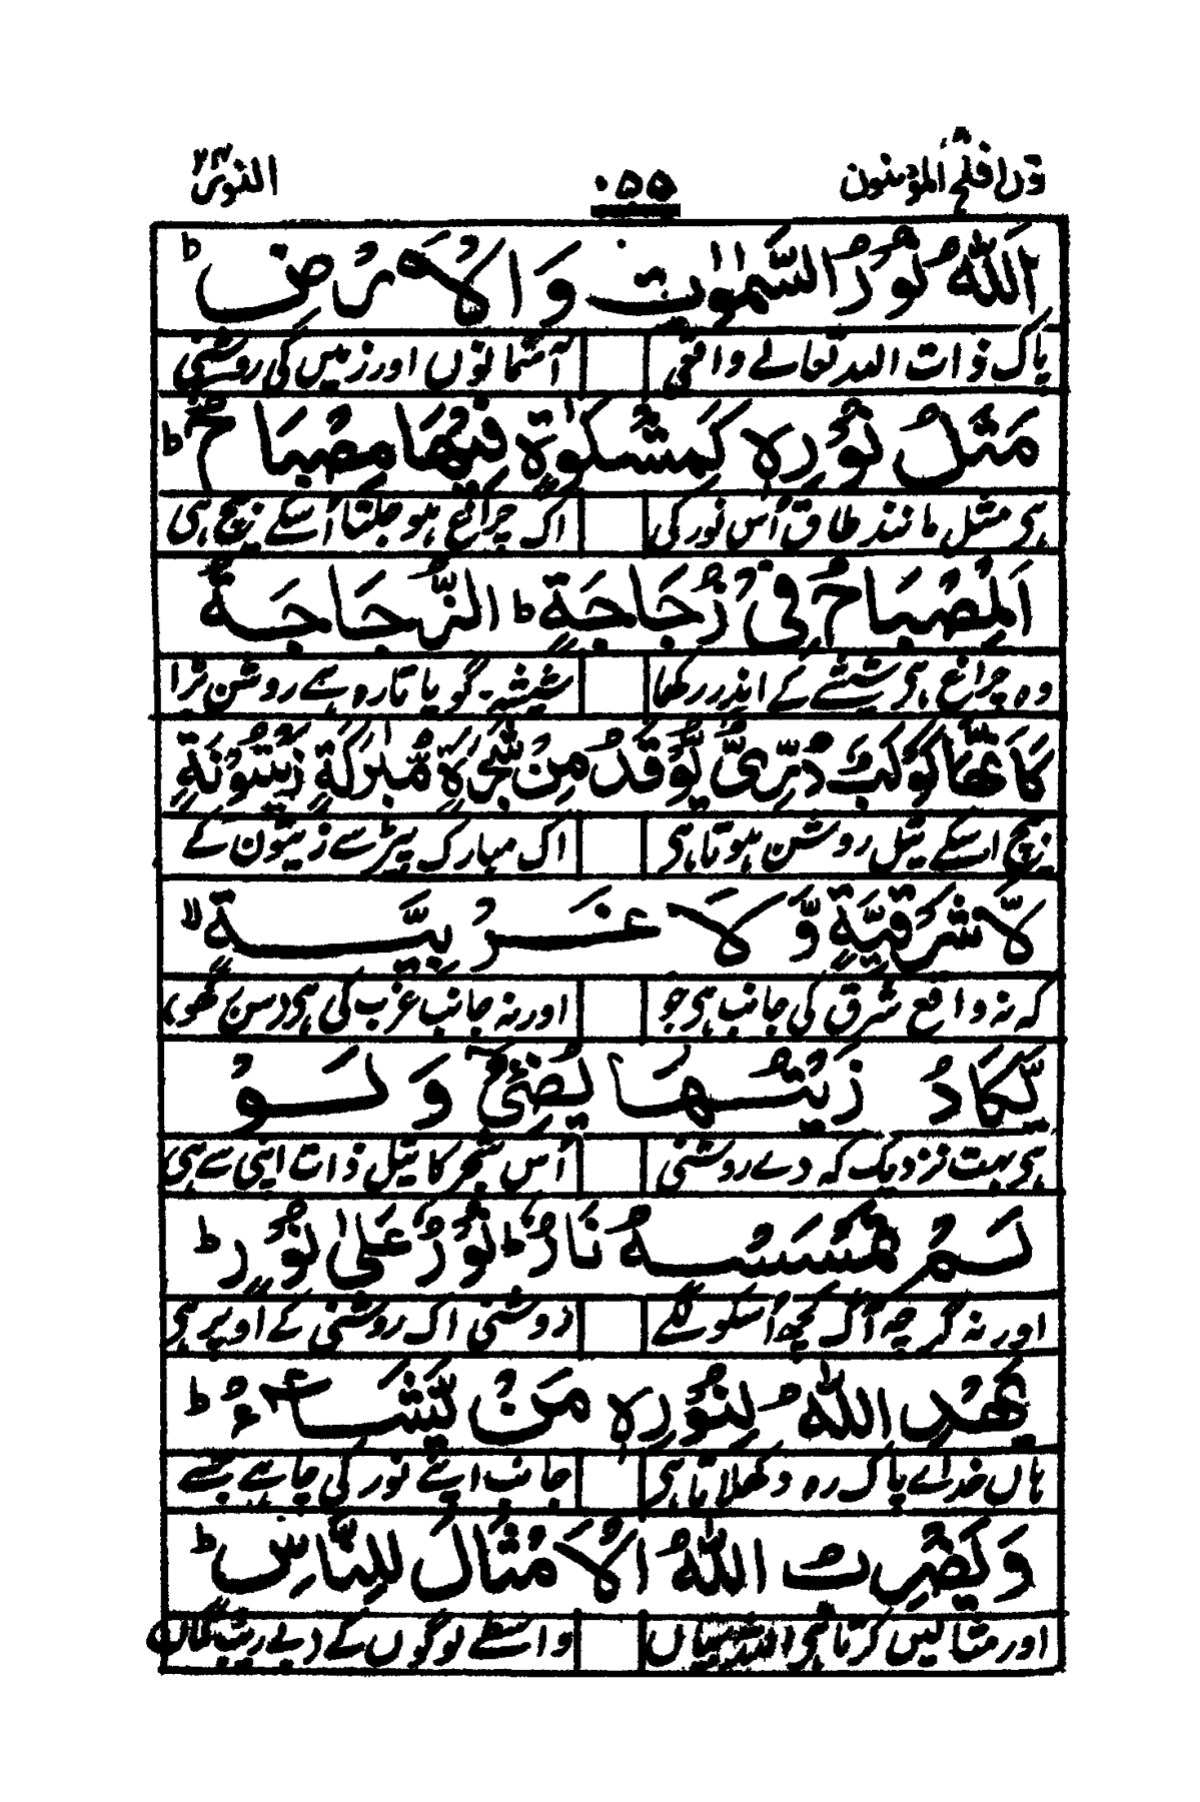 قد افلح المؤمنون ۱۸ ۵۵۰ النور ۲۴
اَللّٰهُ نُوْرُ السَّمٰوٰتِ وَ الْاَرْضِ ط
پاک ذات اللہ تعالے واقعی آسمانوں اور زمیں کی روشنی
مَثَلُ نُوْرِهٖ كَمِشْكٰوةٍ فِيْهَا مِصْبَاحٌ ط
ہی مثل مانند طاق اُس نور کی اک چراغ ہو جلتا اُسکے بیچ ہی
اَلْمِصْبَاحُ فِيْ زُجَاجَةٍ ط اَلزُّجَاجَةُ
وہ چراغ ہی شیشے کے اندر رکھا شیشہ گویا تارہ ہے روشن بڑا
كَاَنَّهَا كَوْكَبٌ دُرِّيٌّ يُّوْقَدُ مِنْ شَجَرَةٍ مُّبٰرَكَةٍ زَيْتُوْنَةٍ
بیچ اسکے تیل روشن ہوتا ہی اک مبارک پیڑ سے زیتون کے
لَّا شَرْقِيَّةٍ وَّ لَا غَرْبِيَّةٍ لا
کہ نہ واقع شرق کی جانب ہی جو اور نہ جانب غرب کی ہی
يَّكَادُ زَيْتُهَا يُضِيْٓءُ وَ لَوْ
ہی بہت نزدیک کہ دے روشنی اُس شجر کا تیل ذات اپنی سے ہی
لَمْ تَمْسَسْهُ نَارٌ ط نُوْرٌ عَلٰى نُوْرٍ ط
اور نہ گرچہ آگ کچھ اُسکو لگے روشنی اک روشنی کے اوپر ہی
يَهْدِي اللّٰهُ لِنُوْرِهٖ مَنْ يَّشَآءُ ط
ہاں خدائے پاک رہ دکھلاتا ہی جانب اپنے نور کی چاہے جسے
وَ يَضْرِبُ اللّٰهُ الْاَمْثَالَ لِلنَّاسِ ط
اور مثالیں کرتا ہی اللہ بیاں واسطے لوگوں کے بے ریب گماں